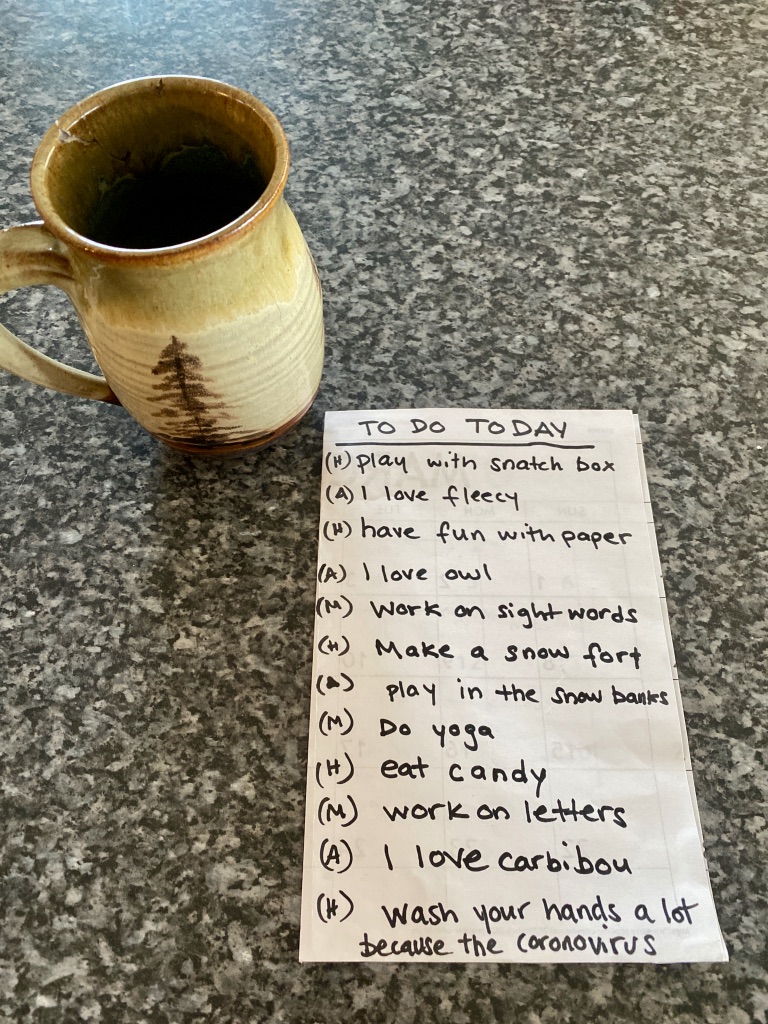 TO DO TODAY
(H) play with snatch box
(A) I love fleecy
(H) have fun with paper
(A) I love owl
(M) Work on sight words
(H) Make a snow fort
(A) play in the snow banks
(M) Do yoga
(H) eat candy
(M) work on letters
(A) I love carbibou
(H) Wash your hands a lot
because the coronovirus